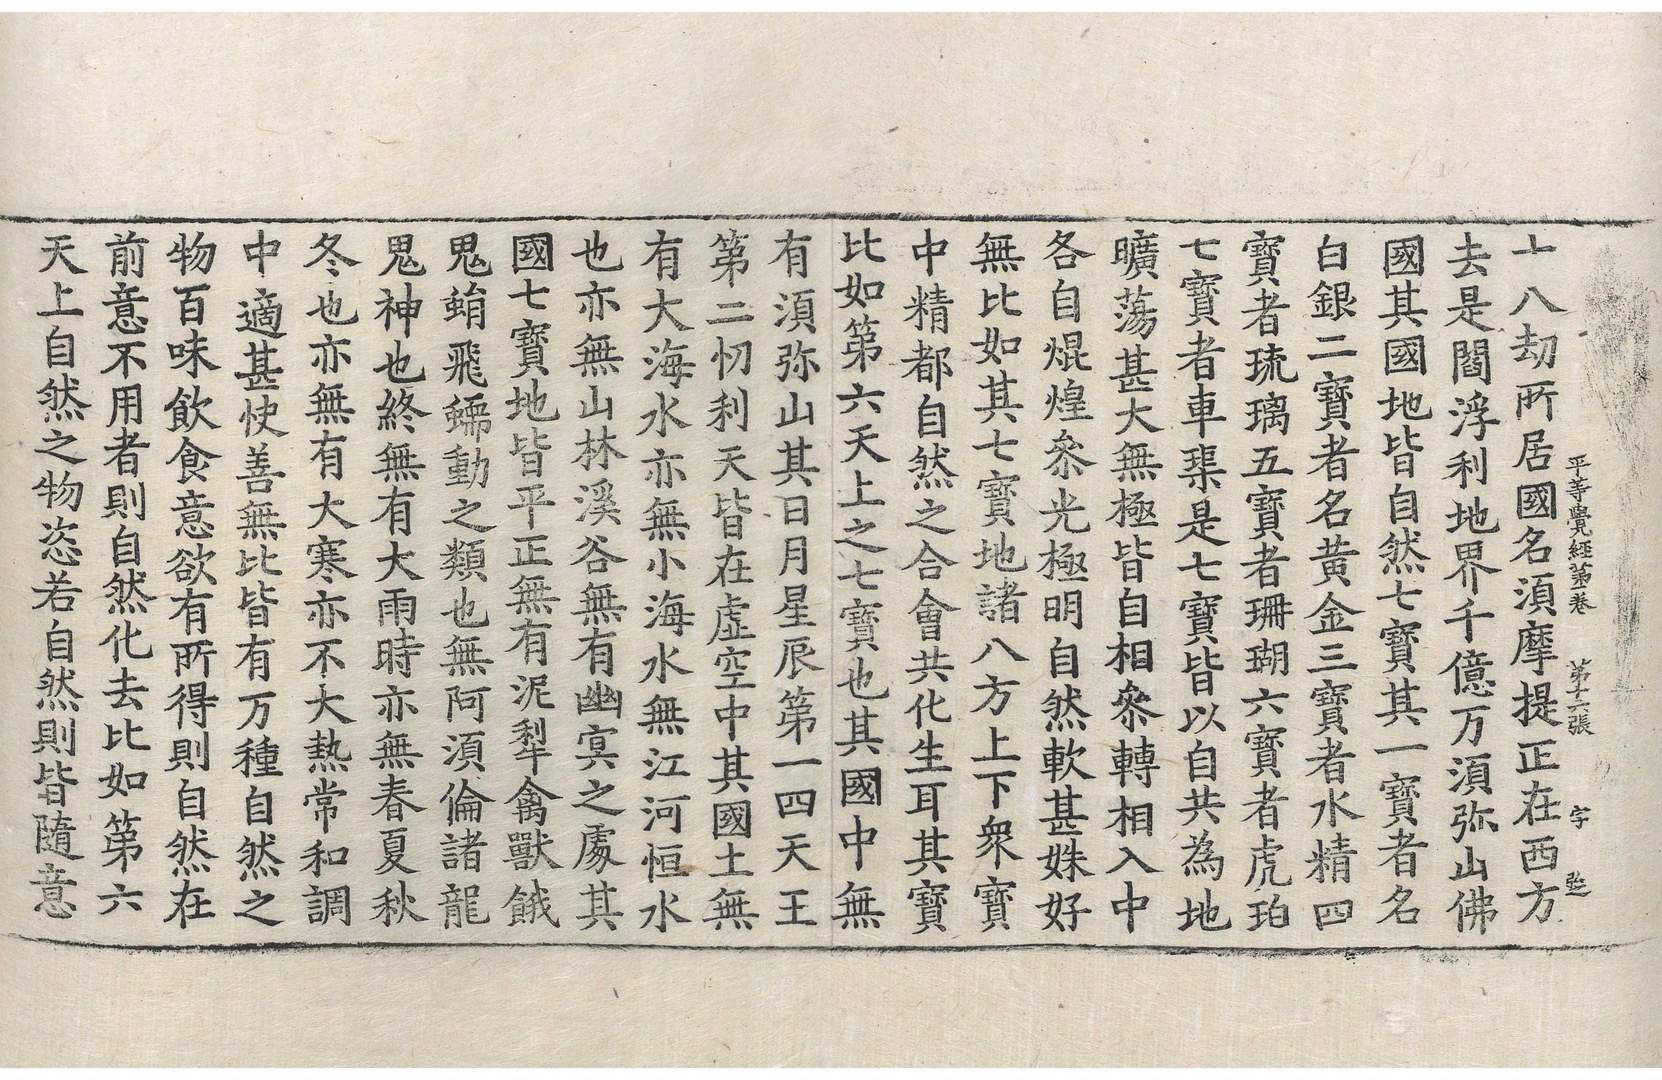 平等覺經第一卷 第十六張 字號
十八劫所居國名須摩提正在西方
去是閻浮利地界千億万須弥山佛
國其國地皆自然七寶其一寶者名
白銀二寶者名黃金三寶者水精四
寶者琉璃五寶者珊瑚六寶者虎珀
七寶者車璖是七寶皆以自共為地
曠蕩甚大無極皆自相叅轉相入中
各自焜煌叅光極明自然軟甚姝好
無比如其七寶地諸八方上下衆寶
中精都自然之合會共化生耳其寶
比如第六天上之七寶也其國中無
有須弥山其日月星辰第一四天王
第二忉利天皆在虛空中其國土無
有大海水亦無小海水無江河恒水
也亦無山林溪谷無有幽冥之處其
國七寶地皆平正無有泥犁禽獸餓
鬼蜎飛蠕動之類也無阿須倫諸龍
鬼神也終無有大雨時亦無春夏秋
冬也亦無有大寒亦不大熱常和調
中適甚快善無比皆有万種自然之
物百味飲食意欲有所得則自然在
前意不用者則自然化去比如第六
天上自然之物恣若自然則皆隨意